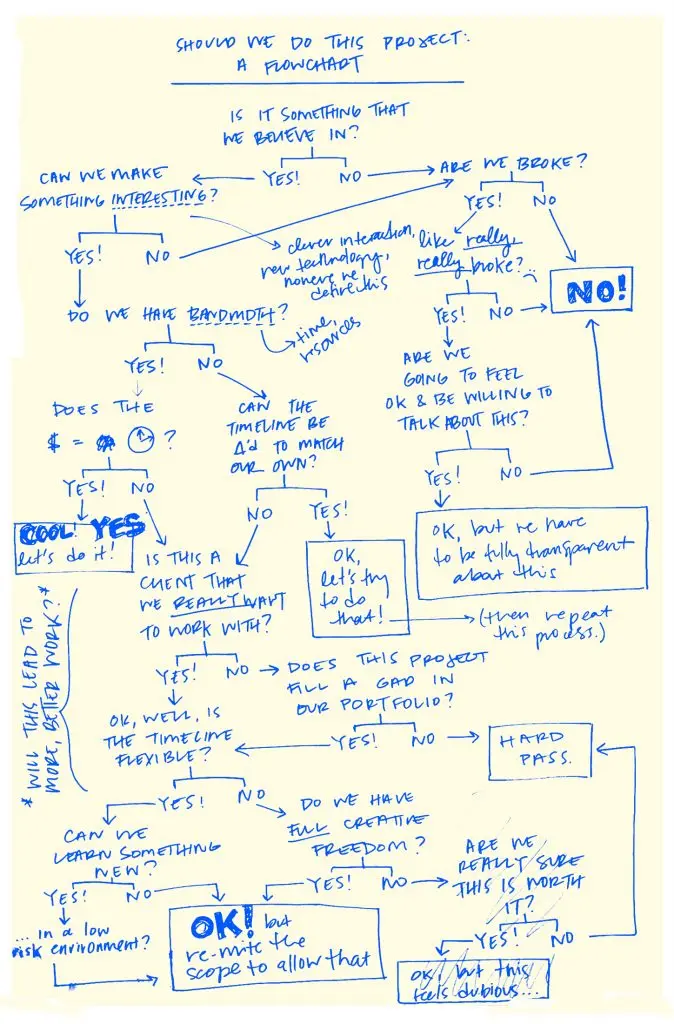 SHOULD WE DO THIS PROJECT:
A FLOWCHART
IS IT SOMETHING THAT
WE BELIEVE IN?
YES! NO
CAN WE MAKE
SOMETHING INTERESTING?
YES! NO
clever interaction,
new technology,
nonere re
define this
ARE WE BROKE?
YES! NO
like really,
really broke?
YES! NO
NO!
DO WE HAVE BANDWIDTH?
time,
resources
YES! NO
ARE WE
GOING TO FEEL
OK & BE WILLING TO
TALK ABOUT THIS?
YES! NO
OK, but we have
to be fully transparent
about this
DOES THE
$ = ?
YES! NO
COOL! YES
let's do it!
CAN THE
TIMELINE BE
Δ'd TO MATCH
OUR OWN?
NO YES!
OK,
let's try
to do
that!
(then repeat
this process.)
IS THIS A
CLIENT THAT
WE REALLY WANT
TO WORK WITH?
YES! NO
* WILL THIS LEAD TO
MORE, BETTER WORK? *
DOES THIS PROJECT
FILL A GAP IN
OUR PORTFOLIO?
YES! NO
HARD
PASS.
OK, WELL, IS
THE TIMELINE
FLEXIBLE?
YES! NO
CAN WE
LEARN SOMETHING
NEW?
YES! NO
... in a low
risk environment?
DO WE HAVE
FULL CREATIVE
FREEDOM?
YES! NO
OK! but
re-write the
scope to allow that
ARE WE
REALLY SURE
THIS IS WORTH
IT?
YES! NO
OK! but this
feels dubious...